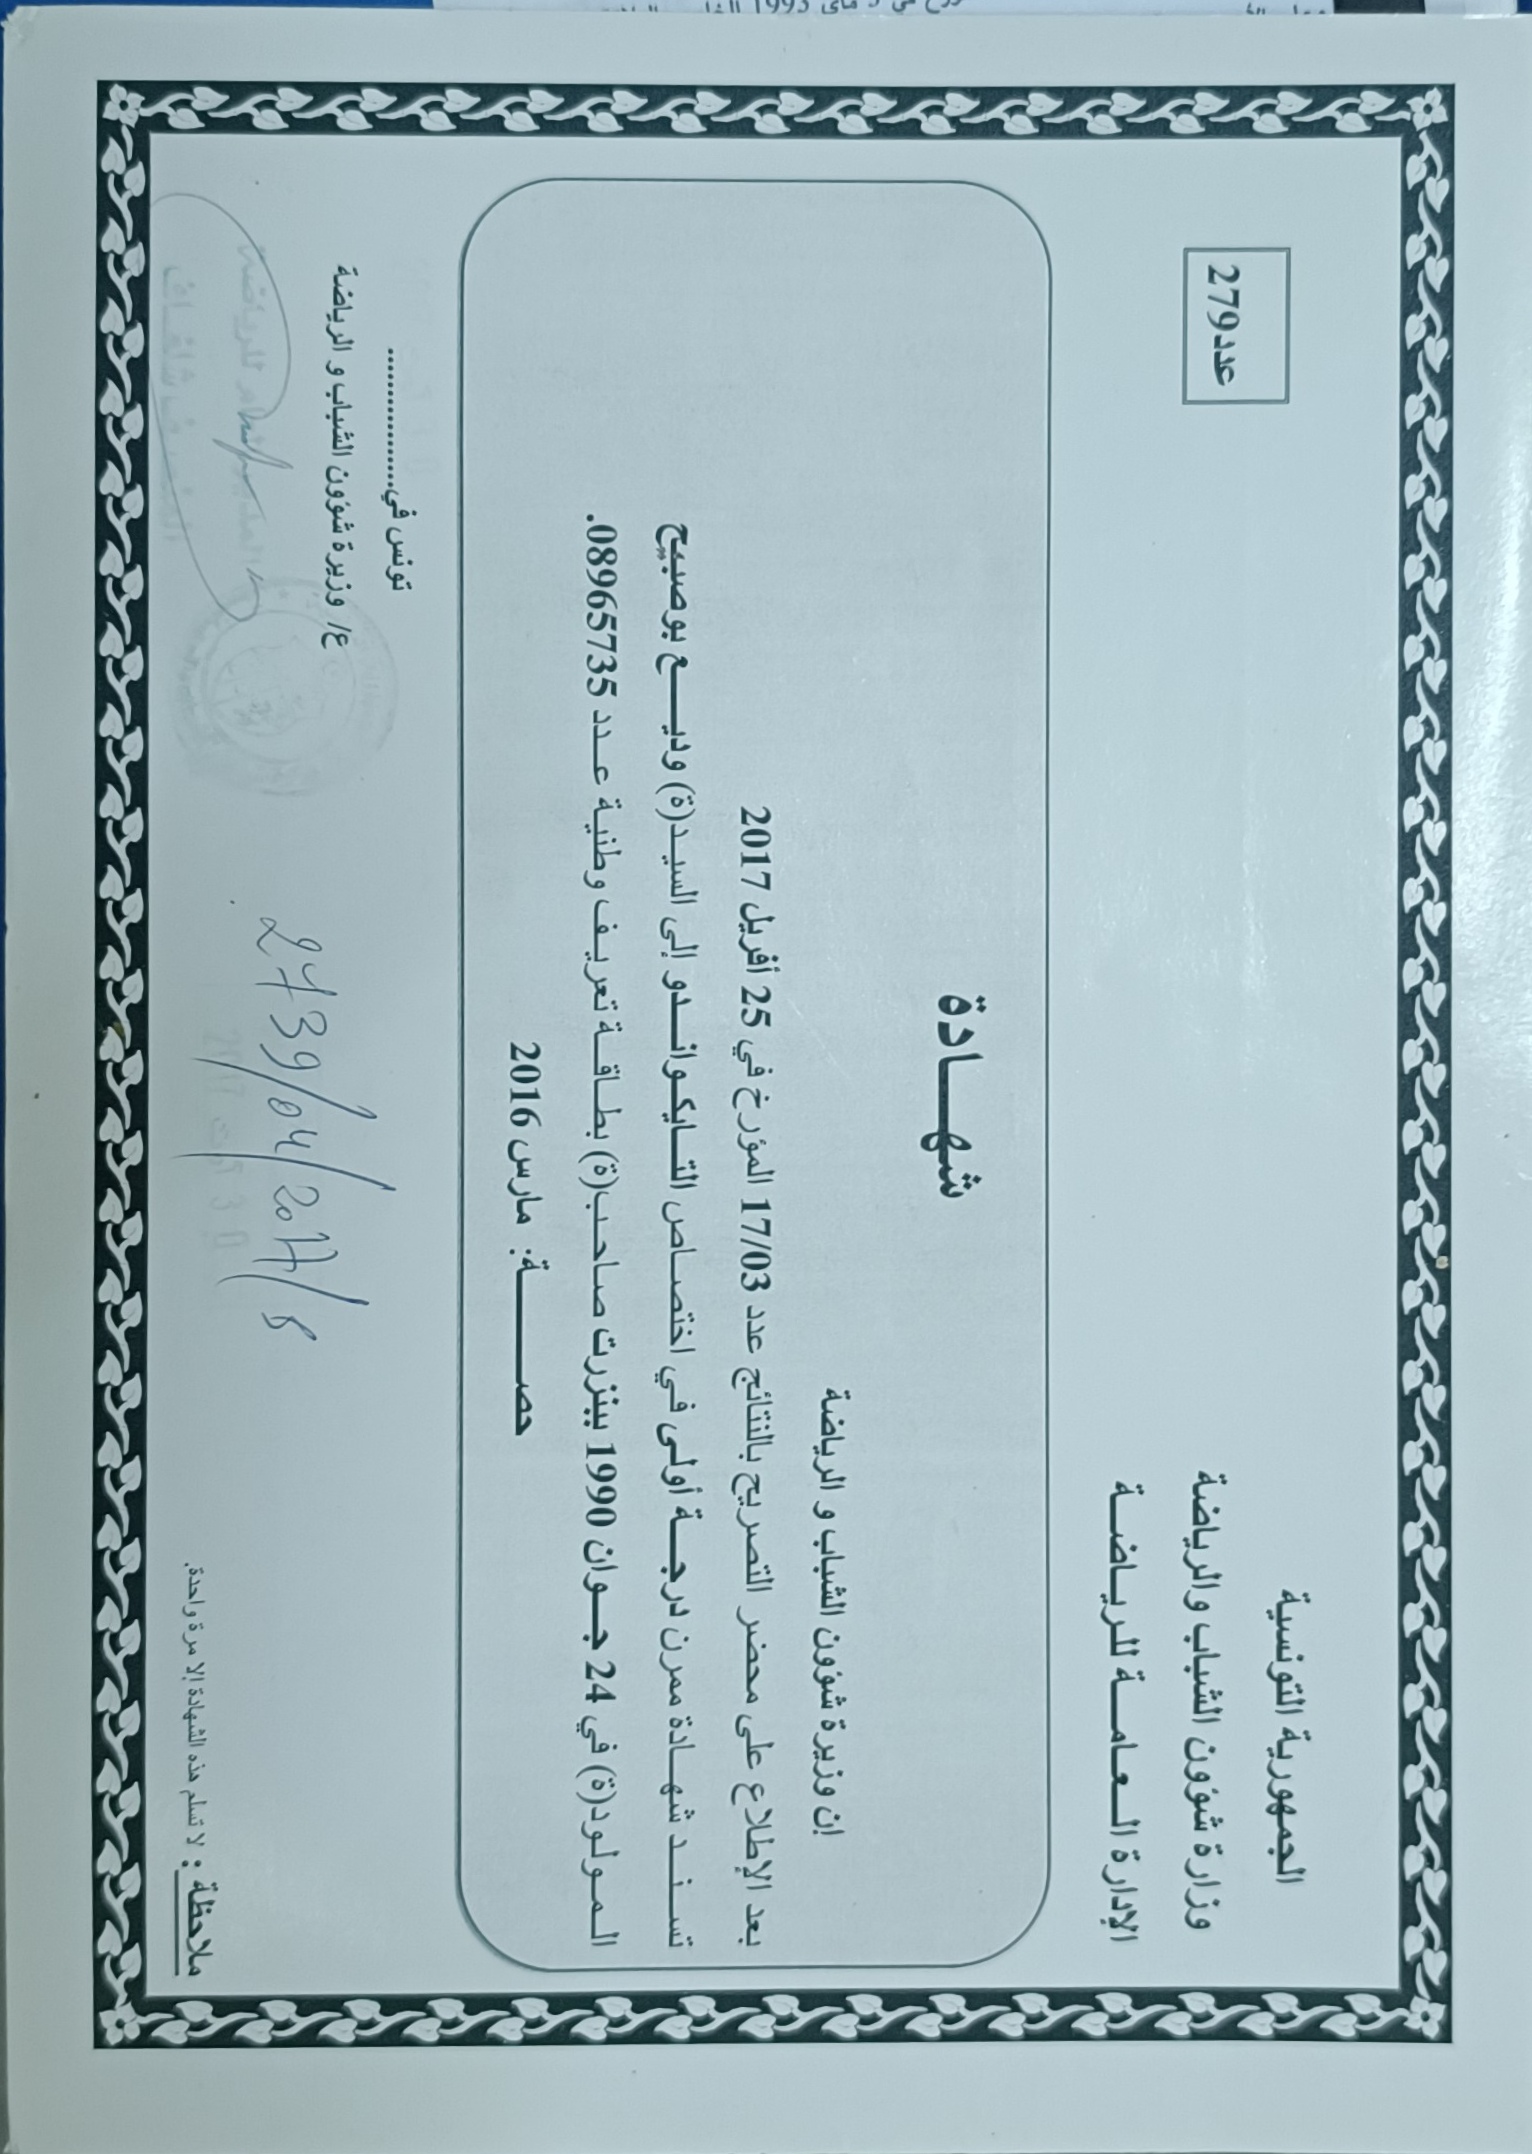 الجمهورية التونسية
وزارة شؤون الشباب والرياضة
الإدارة الـعـامــة للريـاضــة
عدد279
شهــــادة
إن وزيرة شؤون الشباب و الرياضة
بعد الإطلاع على محضر التصريح بالنتائج عدد 17/03 المؤرخ في 25 أفريل 2017
تـسـنـد شهـادة ممرن درجـة أولـى فـي اختصـاص التـايـكـوانـدو إلى السيـد(ة) وديــع بوصبيح
الـمـولـود(ة) في 24 جـوان 1990 ببنزرت صـاحـب(ة) بطـاقـة تعريـف وطنيـة عـدد 08965735.
حصـــــة: مارس 2016
تونس في................
ع/ وزيرة شؤون الشباب و الرياضة
المدير العام للرياضة
2739/04/2017/8
ملاحظة : لا تسلم هذه الشهادة إلا مرة واحدة.